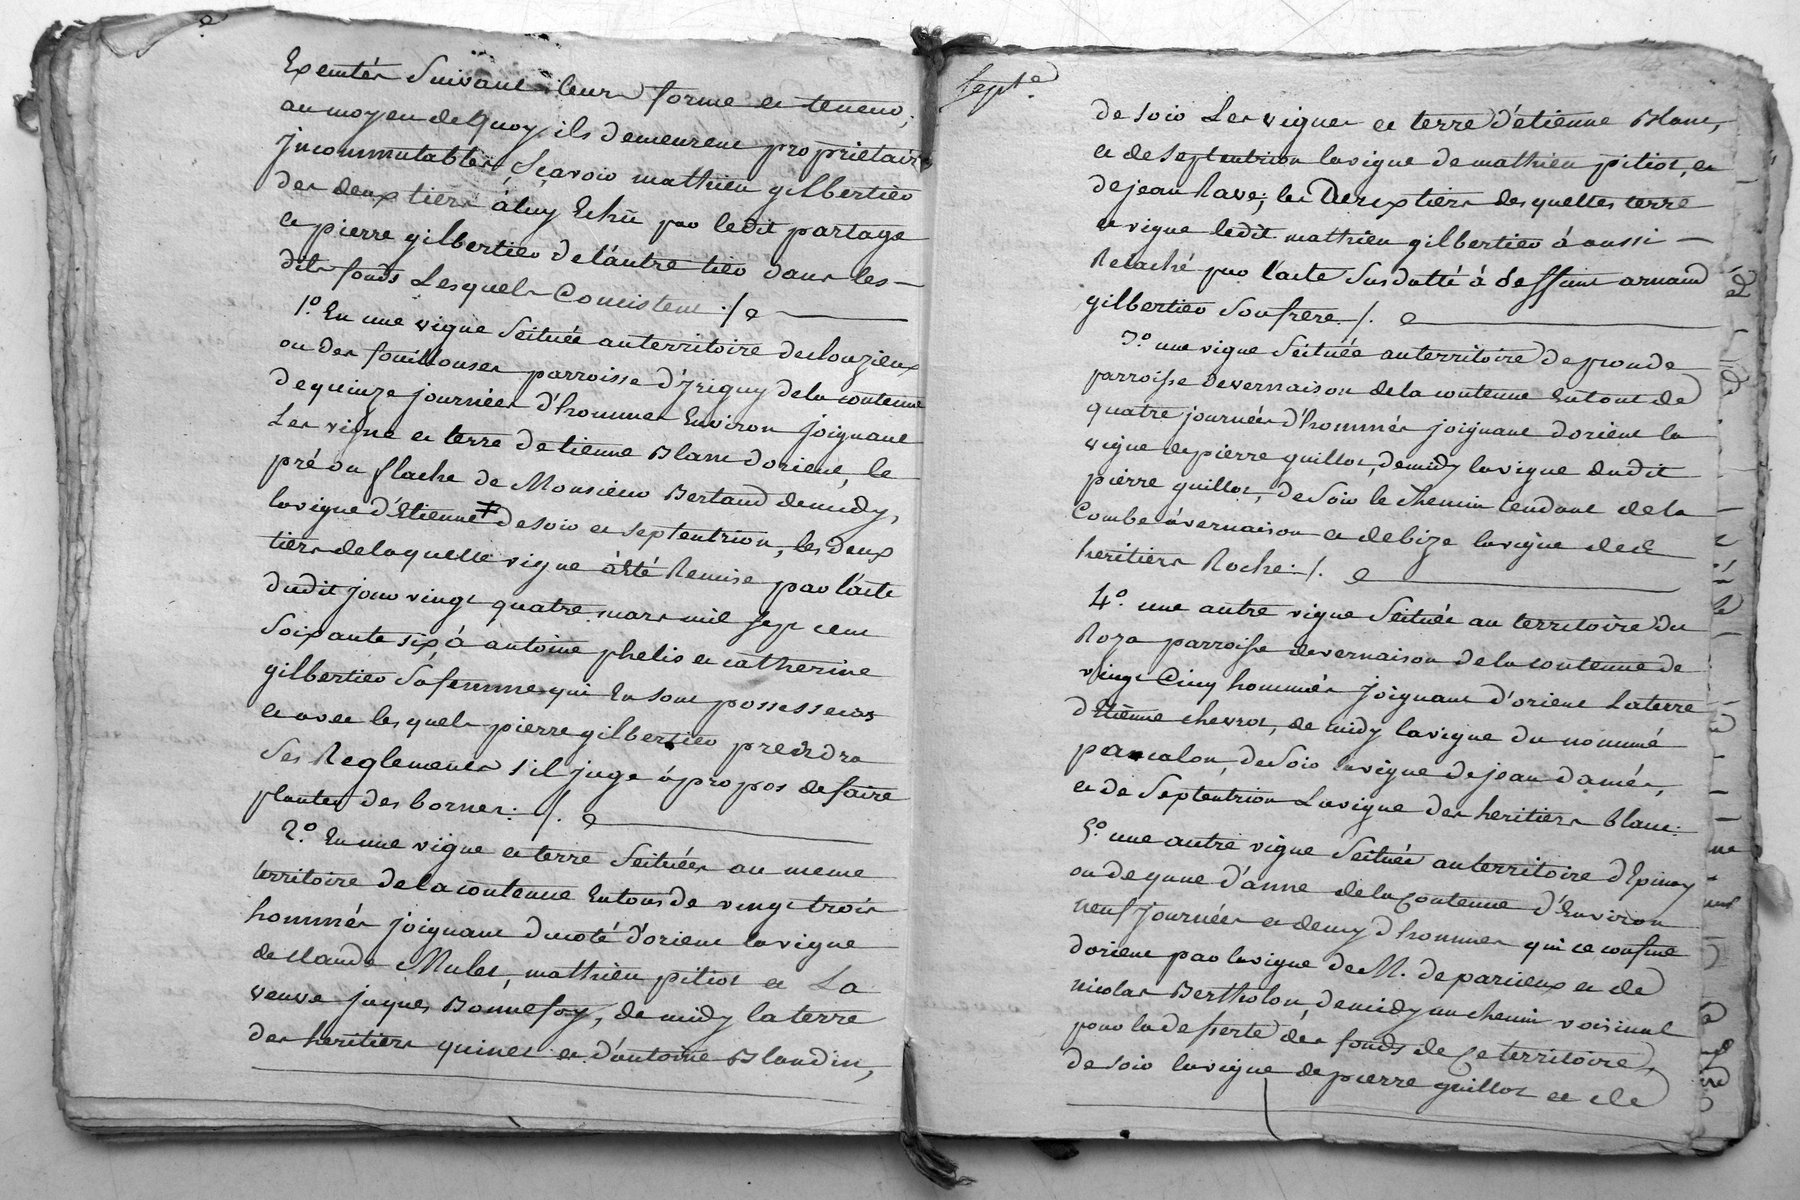 Executés Suivant leur forme et teneur,
au moyen de Quoy, ils demeurent propriétaires
Jncommutables, Sçavoir mathieu gilbertier
des deux tiers à luy Echû par ledit partage
et pierre gilbertier de l'autre tier dans les
dits fonds Lesquels Concistent ./.
1.° En une vigne Scituée au territoire des louzieux
ou des fouillouses parroisse d'Jrigny de la contenue
de quinze journées d'hommes Environ joignant
Les vigne et terre d'etienne Blanc d'orient, le
pré ou flache de Monsieur Bertaud de midy,
la vigne d'Etienne ≠ de soir et septentrion, les deux
tiers de laquelle vigne à été Remise par l'acte
dudit jour vingt quatre mars mil sept cent
soixante six, à antoine phelis et catherine
gilbertier Sa femme qui En sont possesseurs
et avec lesquels pierre gilbertier prendra
Ses Reglements s'il juge àpropos de faire
planter des bornes. /.
2.° En une vigne et terre Scituées au meme
territoire de la contenue Entout de vingt trois
hommées joignant du coté d'orient la vigne
de claude Mulet, mathieu pitiot et La
veuve jaques Bonnefoy, de midy la terre
des heritiers quinet et d'antoine Blandin,
Sept.e
de soir Les vignes et terre d'étienne Blanc,
et de Septentrion la vigne de mathieu pitiot, et
de jean Rave; les Deux tiers desquelles terre
et vigne ledit mathieu gilbertier à aussi
Relaché par l'acte Susdatté à deffunt arnaud
gilbertier Son frere. /.
3.° une vigne Scituée au territoire de pronde
parroisse de vernaison de la contenue Entout de
quatre journées d'hommes joignant d'orient la
vigne de pierre guillot, de midy la vigne dudit
pierre guillot, de Soir le Chemin tendant de la
Combe à vernaison et de bize la vigne des
heritiers Roche. /.
4.° une autre vigne Scituée au territoire du
Roza parroisse de vernaison de la contenue de
vingt Cinq hommées Joignant d'orient La terre
d'Etienne chevrot, de midy la vigne du nommé
pancalon, de Soir la vigne de jean damés,
et de Septentrion La vigne des heritiers blanc.
5.° une autre vigne Scituée au territoire d'Epinay
ou de gane d'anne de la Contenue d'Environ
neuf journées et demy d'hommes qui ce confine
d'orient par la vigne de M. de parcieux et de
nicolas Bertholon, de midy un chemin voisinal
pour la desserte des fonds de Ce territoire,
de soir la vigne de pierre guillot et de